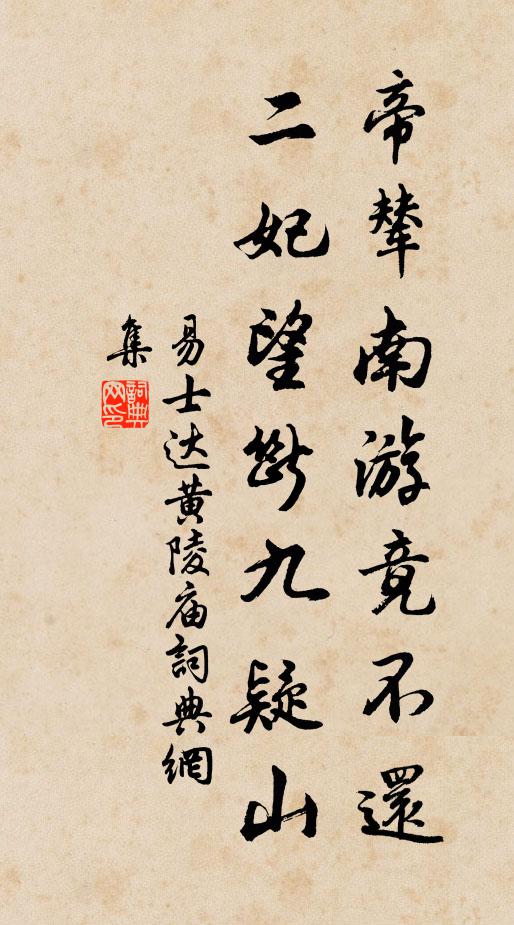 帝辇南游竟不還
二妃望断九疑山
易士达黄陵庙詞典網
集
詞典网印